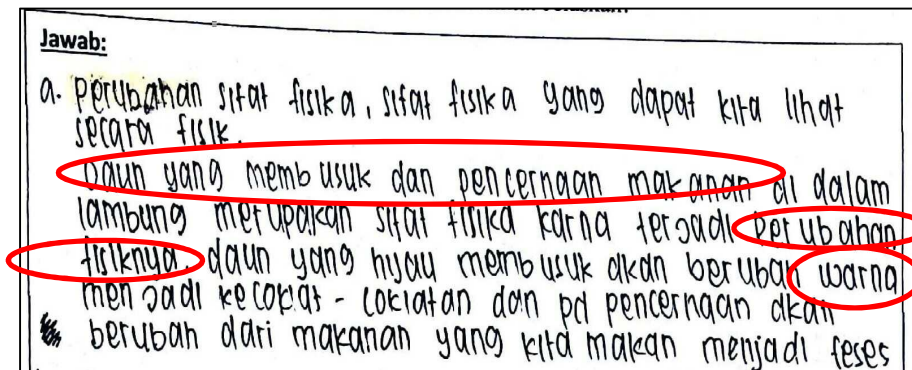 Jawab:
a. Perubahan sifat fisika, sifat fisika yang dapat kita lihat
secara fisik.
Daun yang membusuk dan pencernaan makanan di dalam
lambung merupakan sifat fisika karna terjadi perubahan
fisiknya. daun yang hijau membusuk akan berubah warna
menjadi kecoklat-coklatan dan pd pencernaan akan
berubah dari makanan yang kita makan menjadi feses